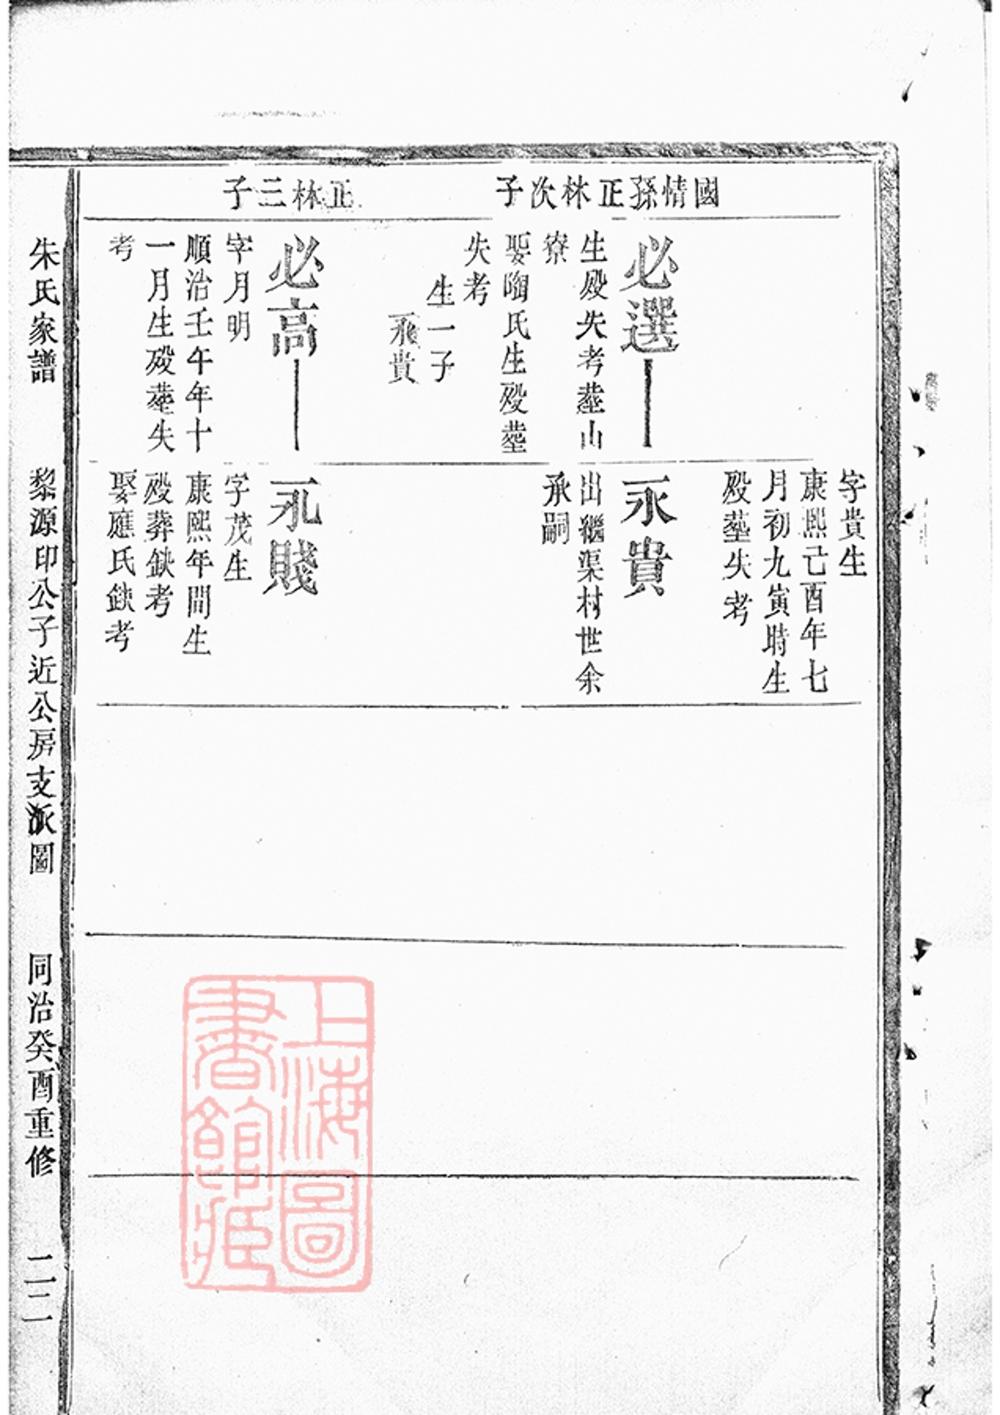 國情孫正林次子
正林三子
必選
生殁失考塟山
寮
娶陶氏生殁塟
失考
生一子
永貴
必高
字月明
順治壬午年十
一月生殁塟失
考
字貴生
康熙己酉年七
月初九寅時生
殁塟失考
永貴
出繼渠村世余
承嗣
永賤
字茂生
康熙年間生
殁葬缺考
娶應氏缺考
朱氏家譜
黎源印公子近公房支派圖
同治癸酉重修
二二
上海圖
書館藏